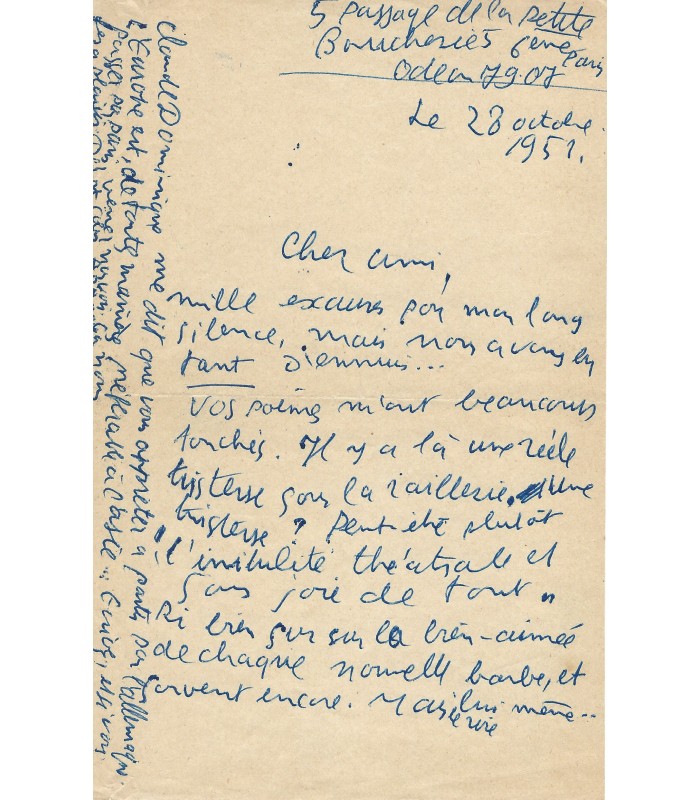 5 passage de la petite
Boucherie 5 6ème Paris
Odeon 79.07
Le 28 octobre
1951.
Cher ami,
mille excuses pour mon long
silence, mais nous avons eu
tant d'ennuis...
Vos poèmes m'ont beaucoup
touchés. Il y a là une réelle
tristesse sous la raillerie. Une
tristesse ? Peut être plutôt
"l'inutilité théâtrale et
sans joie de tout"
bien sur sur la bien-aimée
de chaque nouvelle barbe, et
souvent encore. Mais lui même...
Claude Dominique me dit que vous apprêter a partir pour l'allemagne.
L'Europe est, de toute manière préférable à l'asie... Ecrivez, et si vous
passez par paris, venez nous voir. ça nous